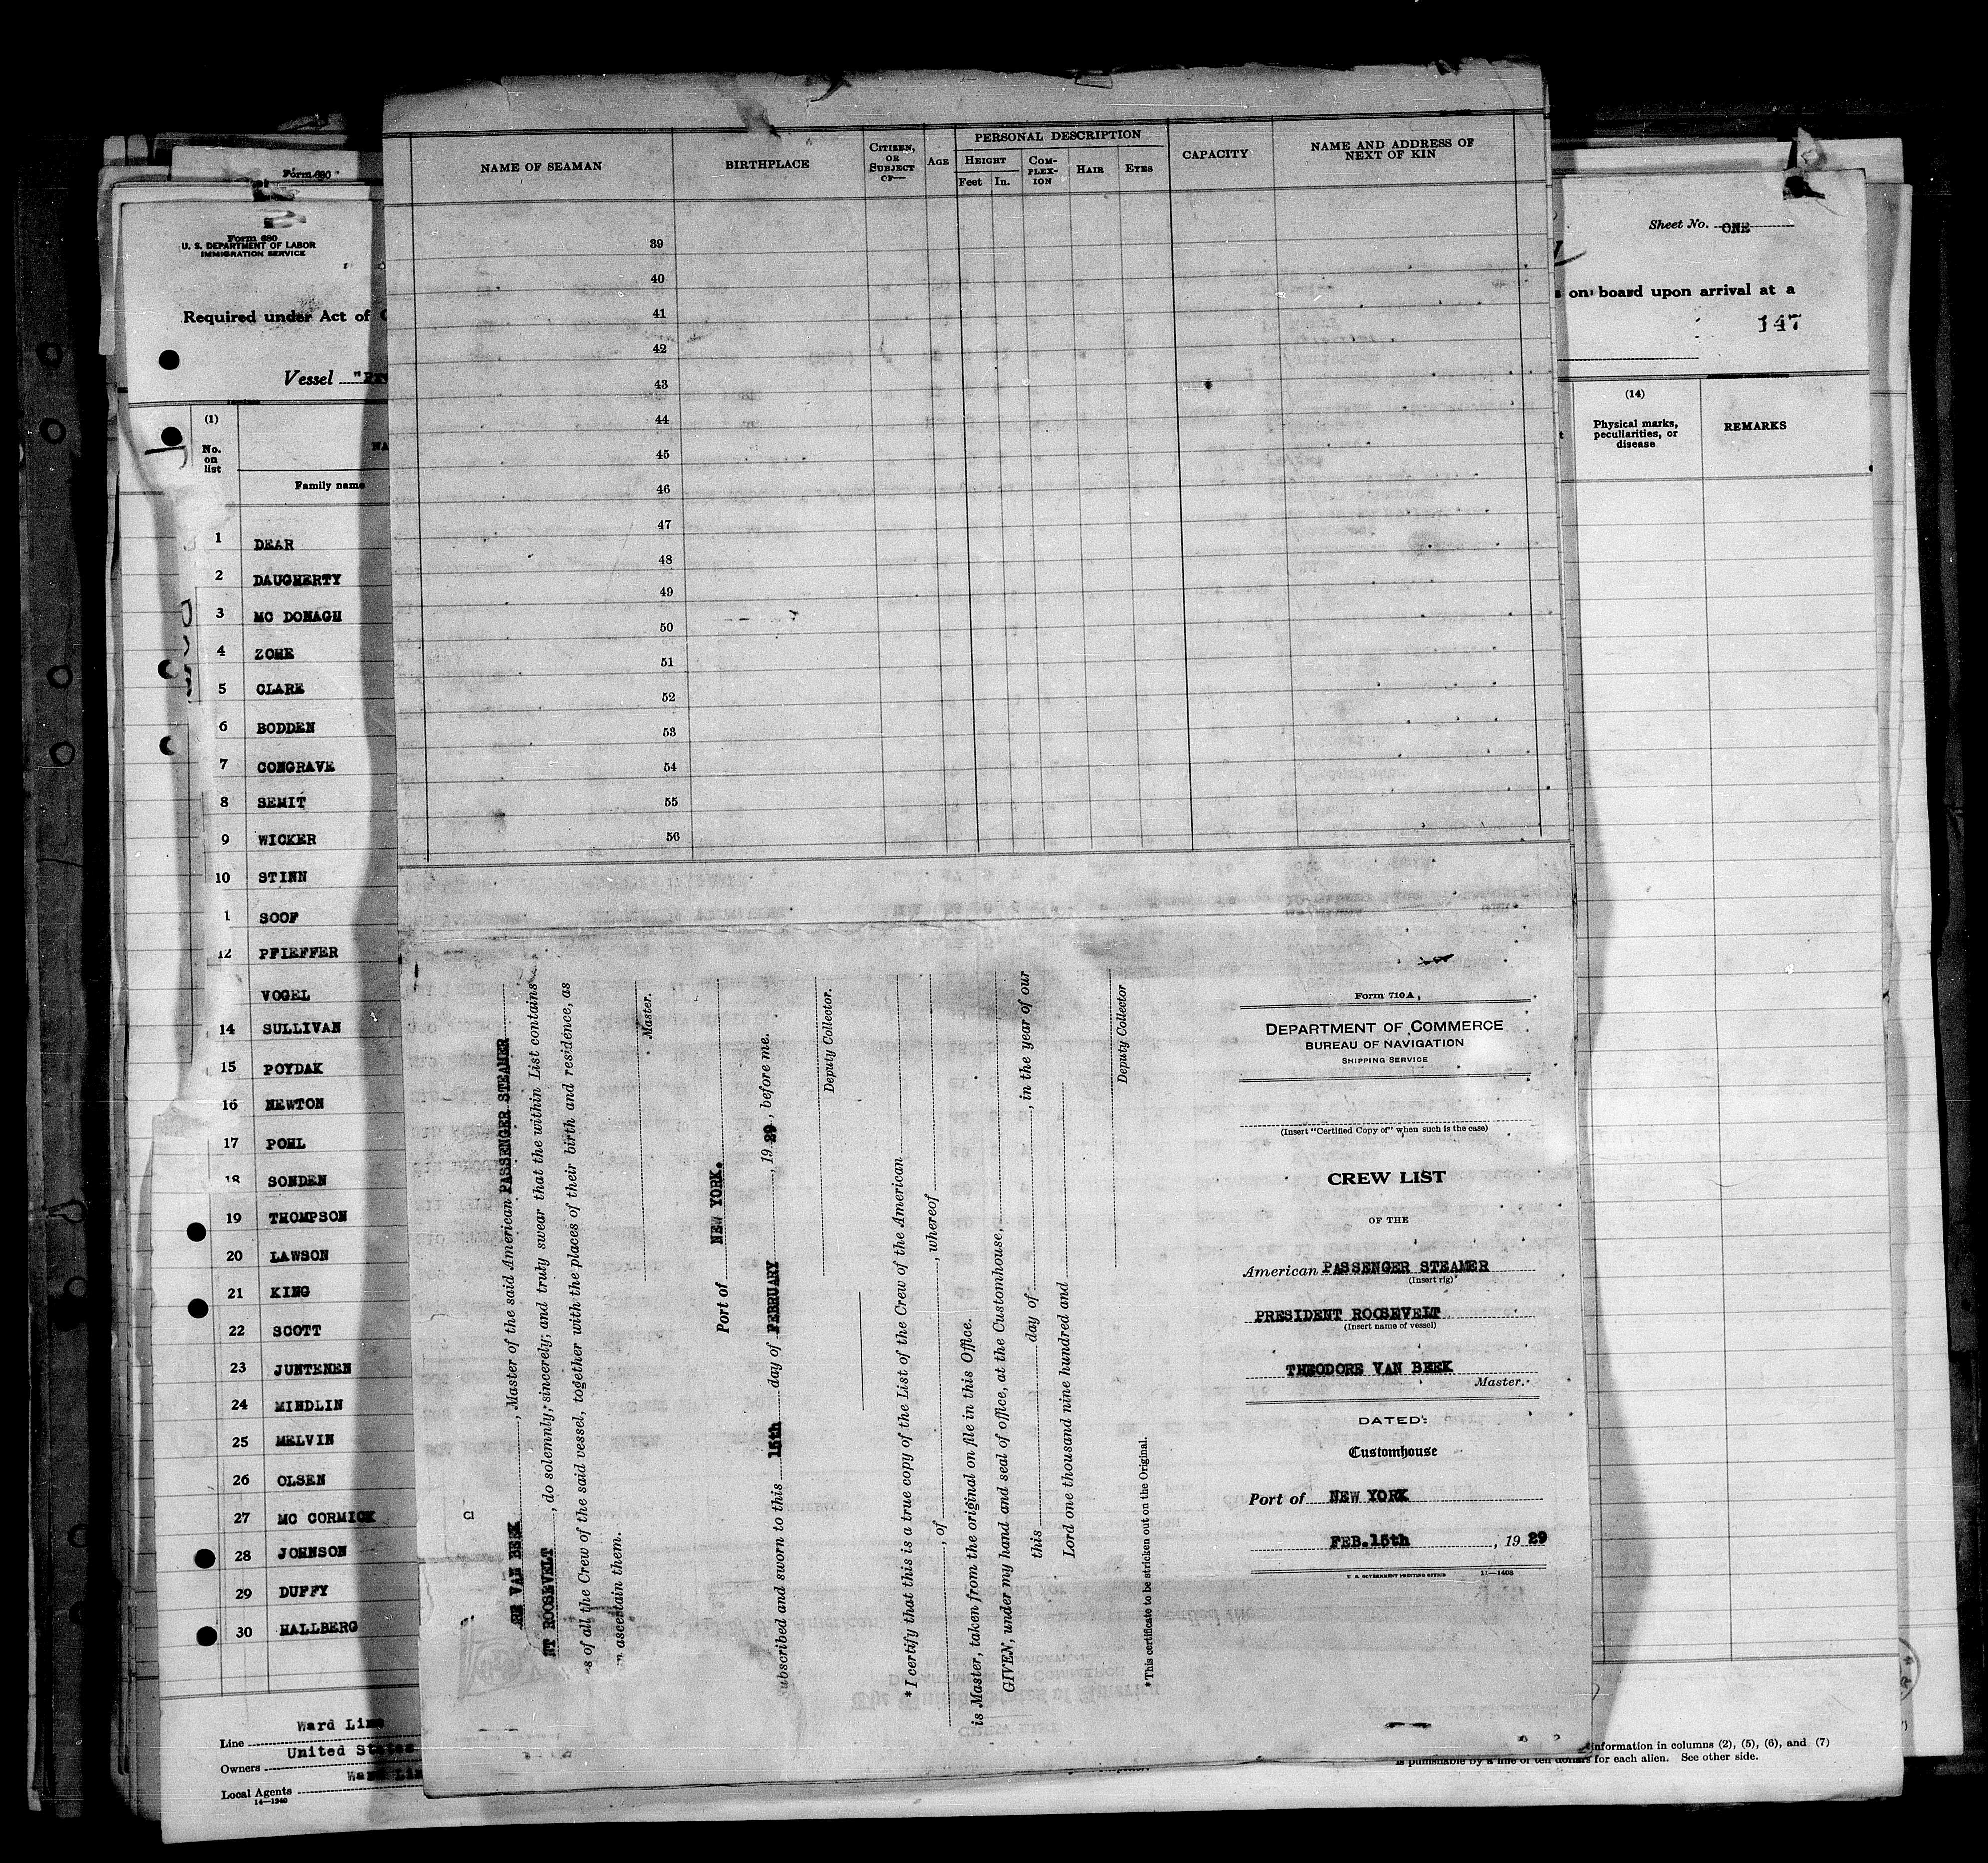 Form 680
Form 680
U. S. DEPARTMENT OF LABOR
IMMIGRATION SERVICE
Required under Act of
Vessel
Sheet No. ONE
on board upon arrival at a
147
(1)
No.
on
list
Family name
(14)
Physical marks,
peculiarities, or
disease
REMARKS
1 DEAR
2 DAUGHERTY
3 MC DONAGH
4 ZOHE
5 CLARE
6 BODDEN
7 CONGRAVE
8 SEMIT
9 WICKER
10 STINN
1 SOOF
12 PFIEFFER
VOGEL
14 SULLIVAN
15 POYDAK
16 NEWTON
17 POHL
18 SONDEN
19 THOMPSON
20 LAWSON
21 KING
22 SCOTT
23 JUNTENEN
24 MINDLIN
25 MELVIN
26 OLSEN
27 MC CORMICK
28 JOHNSON
29 DUFFY
30 HALLBERG
Line Ward Line
Owners United States
Local Agents Ward
14—1240
information in columns (2), (5), (6), and (7)
is punishable by a fine of ten dollars for each alien. See other side.
NAME OF SEAMAN
BIRTHPLACE
CITIZEN,
OR
SUBJECT
OF—
AGE
PERSONAL DESCRIPTION
HEIGHT
Feet In.
COM-
PLEX-
ION
HAIR
EYES
CAPACITY
NAME AND ADDRESS OF
NEXT OF KIN
39
40
41
42
43
44
45
46
47
48
49
50
51
52
53
54
55
56
RE VAN BEEK, Master of the said American PASSENGER STEAMER
NT ROOSEVELT, do solemnly, sincerely, and truly swear that the within List contains
s of all the Crew of the said vessel, together with the places of their birth and residence, as
ascertain them.
Master.
Port of NEW YORK.
ubscribed and sworn to this 15th day of FEBRUARY, 19 29, before me.
Deputy Collector.
*I certify that this is a true copy of the List of the Crew of the American
, of , whereof
is Master, taken from the original on file in this Office.
GIVEN, under my hand and seal of office, at the Customhouse,
this day of , in the year of our
Lord one thousand nine hundred and
Deputy Collector
*This certificate to be stricken out on the Original.
Form 710A
DEPARTMENT OF COMMERCE
BUREAU OF NAVIGATION
SHIPPING SERVICE
(Insert "Certified Copy of" when such is the case)
CREW LIST
OF THE
American PASSENGER STEAMER
(Insert rig)
PRESIDENT ROOSEVELT
(Insert name of vessel)
THEODORE VAN BEEK
Master.
DATED:
Customhouse
Port of NEW YORK
FEB.15th, 19 29
U. S. GOVERNMENT PRINTING OFFICE 11—1408